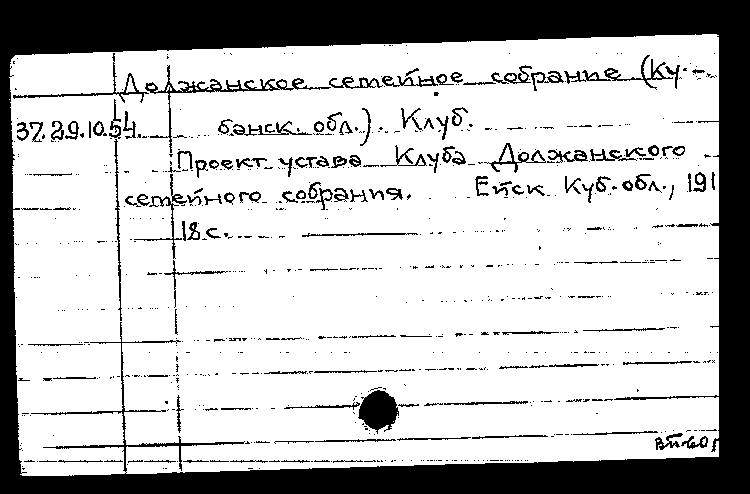 Должанское семейное собрание (Ку-
37.29.10.54. банск. обл.). Клуб.
Проект устава Клуба Должанского
семейного собрания. Ейск Куб. обл., 191
18 с.